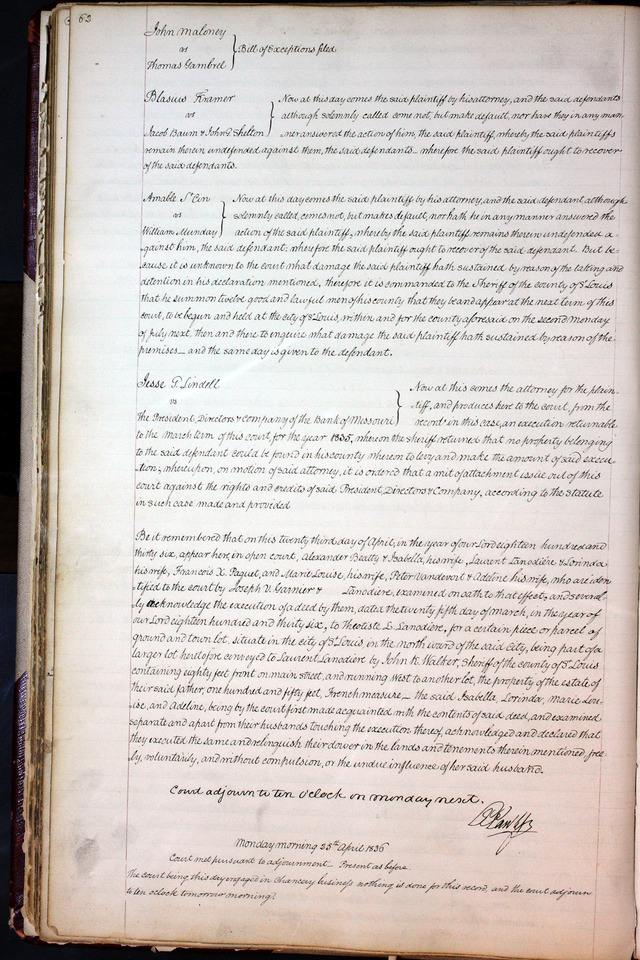 63
John Maloney
vs
Thomas Gambrel
Bill of Exceptions filed
Blasius Kramer
vs
Jacob Baum & John D Shelton
Now at this day comes the said plaintiff by his attorney, and the said defendants
although solemnly called come not, but make default, nor have they in any man-
ner answered the action of him, the said plaintiff, whereby the said plaintiffs
remain therein undefended against them, the said defendants — wherefore the said plaintiff ought to recover
of the said defendants.
Amable St Cin
vs
William Munday
Now at this day comes the said plaintiff by his attorney, and the said defendant although
solemnly called, comes not, but makes default, nor hath he in any manner answered the
action of the said plaintiff, whereby the said plaintiff remains therein undefended a-
gainst him, the said defendant: wherefore the said plaintiff ought to recover of the said defendant. But be-
cause it is unknown to the court what damage the said plaintiff hath sustained by reason of the taking and
detention in his declaration mentioned, therefore it is commanded to the Sheriff of the county of St Louis
that he summon twelve good and lawful men of his county that they be and appear at the next term of this
court, to be begun and held at the city of St Louis, within and for the county aforesaid on the second Monday
of July next, then and there to enquire what damage the said plaintiff hath sustained by reason of the
premises — and the same day is given to the defendant.
Jesse G. Lindell
vs
The President, Directors & Company of the Bank of Missouri
Now at this comes the attorney for the plain-
tiff, and produces here to the court, from the
records in this case, an execution returnable
to the March term of this court, for the year 1835, whereon the sheriff returned that no property belonging
to the said defendant could be found in his county whereon to levy and make the amount of said execu-
tion; whereupon, on motion of said attorney, it is ordered that a writ of attachment issue out of this
court against the rights and credits of said President, Directors & Company, according to the statute
in such case made and provided
Be it remembered that on this twenty third day of April, in the year of our Lord eighteen hundred and
thirty six, appear here, in open court, Alexander Beatty & Isabella, his wife, Laurent Lanadiere & Lorinda
his wife, Francois X. Paquet, and Marie Louise, his wife, Peter Vandevort & Adeline his wife, who are iden-
tified to the court by Joseph V. Garnier & Lanadiere, examined on oath to that effect, and several-
ly acknowledge the execution of a deed by them, dated the twenty fifth day of March, in the year of
our Lord eighteen hundred and thirty six, to Theotiste L. Lanadiere, for a certain piece or parcel of
ground and town lot, situate in the city of St Louis, in the north ward of the said City, being part of a
larger lot heretofore conveyed to Laurent Lanadiere by John K. Walker, Sheriff of the county of St Louis
containing eighty feet front on main street, and running West to another lot, the property of the estate of
their said father, one hundred and fifty feet, French measure — the said Isabella, Lorinda, Marie Lou-
ise, and Adeline, being by the court first made acquainted with the contents of said deed, and examined
separate and apart from their husbands touching the execution thereof, acknowledged and declared that
they executed the same and relinquish their dower in the lands and tenements therein mentioned free-
ly, voluntarily, and without compulsion, or the undue influence of her said husband.
Court adjourn to ten o'clock on monday next.
Monday morning 25th April 1836
Court met pursuant to adjournment — Present as before
The court being this day engaged in Chancery business nothing is done for this record, and the court adjourn
to ten oclock tomorrow morning.